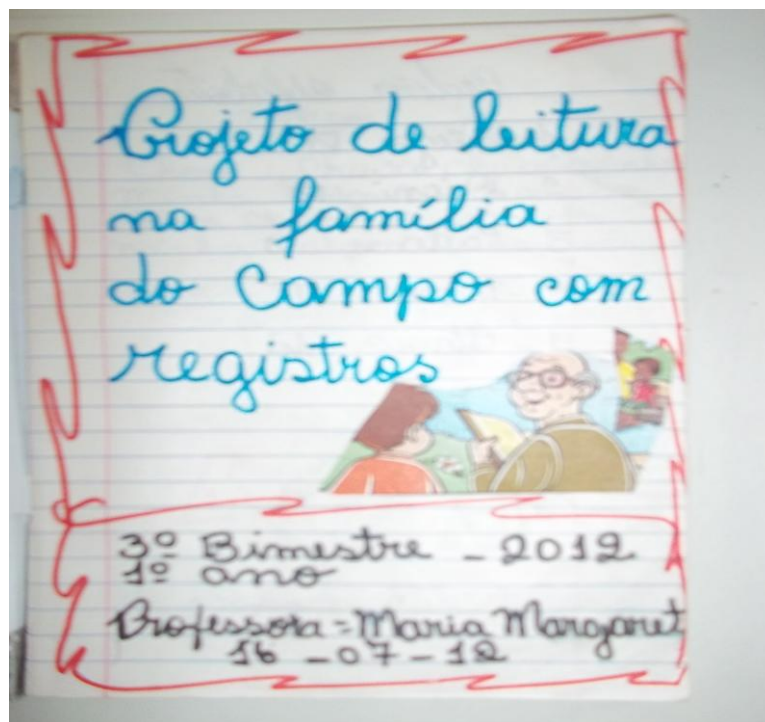 Projeto de leitura
na família
do Campo com
registros
3º Bimestre - 2012
1º ano
Professora = Maria Margaret
16 - 07 - 12